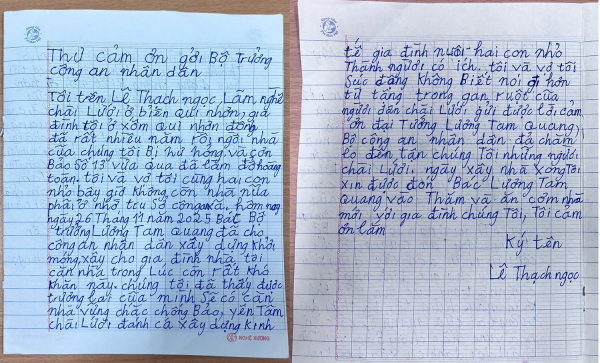 Thư cảm ơn gởi Bộ Trưởng
công an nhân dân
Tôi tên Lê Thạch ngọc, Làm nghề
chài Lưới ở biển qui nhơn, gia
đình tôi ở xóm qui nhơn đông
đã rất nhiều năm rồi ngôi nhà
của chúng tôi Bị hư hỏng và cơn
Bảo số 13 vừa qua đã làm đỗ hoàng
toàn, tôi và vợ tôi cùng hai con
nhỏ bây giờ không còn nhà nữa
phải ở nhờ trụ sở công xã, hôm nay
ngày 26 Tháng 11 năm 2025 Bác Bộ
trưởng Lương Tam Quang đã cho
công an nhân dân xây dựng khởi
móng, xây cho gia đình nhà tôi
căn nhà trong Lúc còn rất khó
khăn này. chúng tôi đã thấy được
tương lai của mình sẽ có căn
nhà vững chắc chống Bảo, yên Tâm
chài Lưới đánh cá xây dựng kinh
NGHỆ XƯƠNG
tế gia đình nuôi hai con nhỏ
Thành người có ích. tôi và vợ tôi
Súc động không Biết nói gì hơn
từ tằng trong gan ruột của
người dân chài Lưới gửi được lời cảm
ơn đại Tướng Lương Tam Quang,
Bộ công an nhân dân đã chăm
lo đến tận chúng Tôi những người
chài Lưới. ngày xây nhà xong Tôi
xin được đón Bác Lương Tam
Quang vào Thăm và ăn cơm nhà
mới với gia đình chúng Tôi, Tôi cảm
ơn lắm
Ký tên
Lê Thạch ngọc